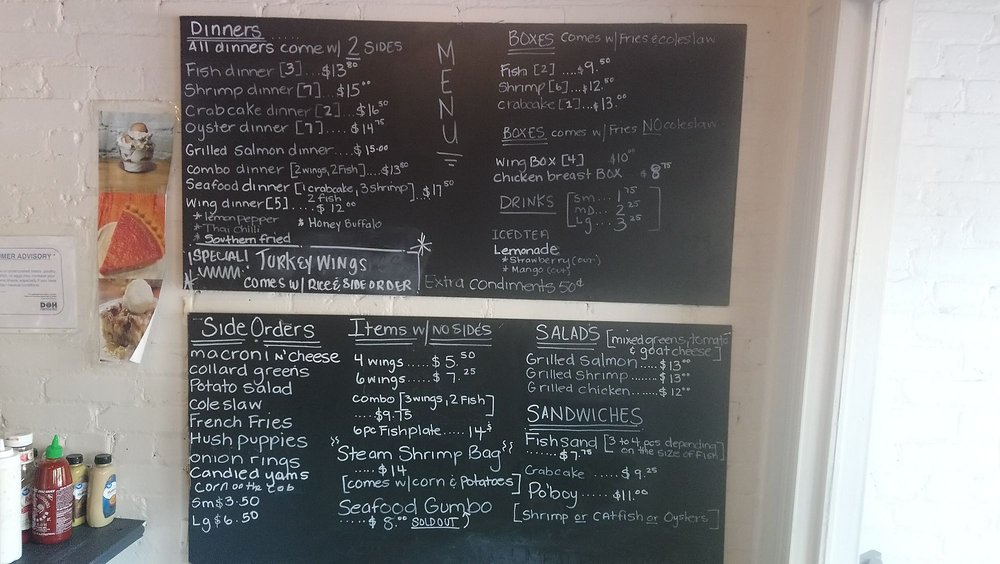 Dinners .....
All dinners come w/ 2 SIDES
Fish dinner [3]...$13 80
Shrimp dinner [7]...$15 00
Crabcake dinner [2]...$16 50
Oyster dinner [7]....$14 75
Grilled Salmon dinner....$15.00
Combo dinner [2wings, 2Fish]....$13 80
Seafood dinner [1crabcake, 3shrimp]...$17 50
2 fish
Wing dinner [5]....$12 00
*lemon pepper * Honey Buffalo
*Thai chilli
*Southern fried
SPECIAL! TURKEY WINGS
COMES W/ RICE & SIDE ORDER
MENU
BOXES Comes w/ Fries & coleslaw
Fish [2] ....$9.50
Shrimp [6]...$12.50
crabcake [1]...$13.00
BOXES comes w/ Fries NO coleslaw
Wing Box [4] $10 00
Chicken breast BOX $8 75
DRINKS [Sm... 1 75
MD... 2 25
Lg... 3 25]
ICED TEA
Lemonade
*Strawberry (our)
*Mango (our)
Extra condiments 50¢
Side Orders
macroni N' cheese
collard greens
Potato salad
Coleslaw
French Fries
Hush puppies
onion rings
Candied yams
Corn on the cob
Sm $3.50
Lg $6.50
Items w/ NO SIDES
4 wings .....$5.50
6 wings .....$7.25
Combo [3wings, 2Fish]
.....$9.75
6pc Fishplate.....14$
Steam Shrimp Bag
.....$14
[comes w/ corn & Potatoes]
Seafood Gumbo
.....$8.00 SOLD OUT
SALADS [mixed greens, tomato
& goat cheese]
Grilled Salmon.....$13 00
Grilled Shrimp.......$13 00
Grilled chicken.....$12 00
SANDWICHES
Fish sand [3 to 4 pcs depending
.......$7.75 on the size of Fish]
Crabcake.....$9.25
Po'boy.....$11.00
[Shrimp or Catfish or Oysters]
UMER ADVISORY
DOH